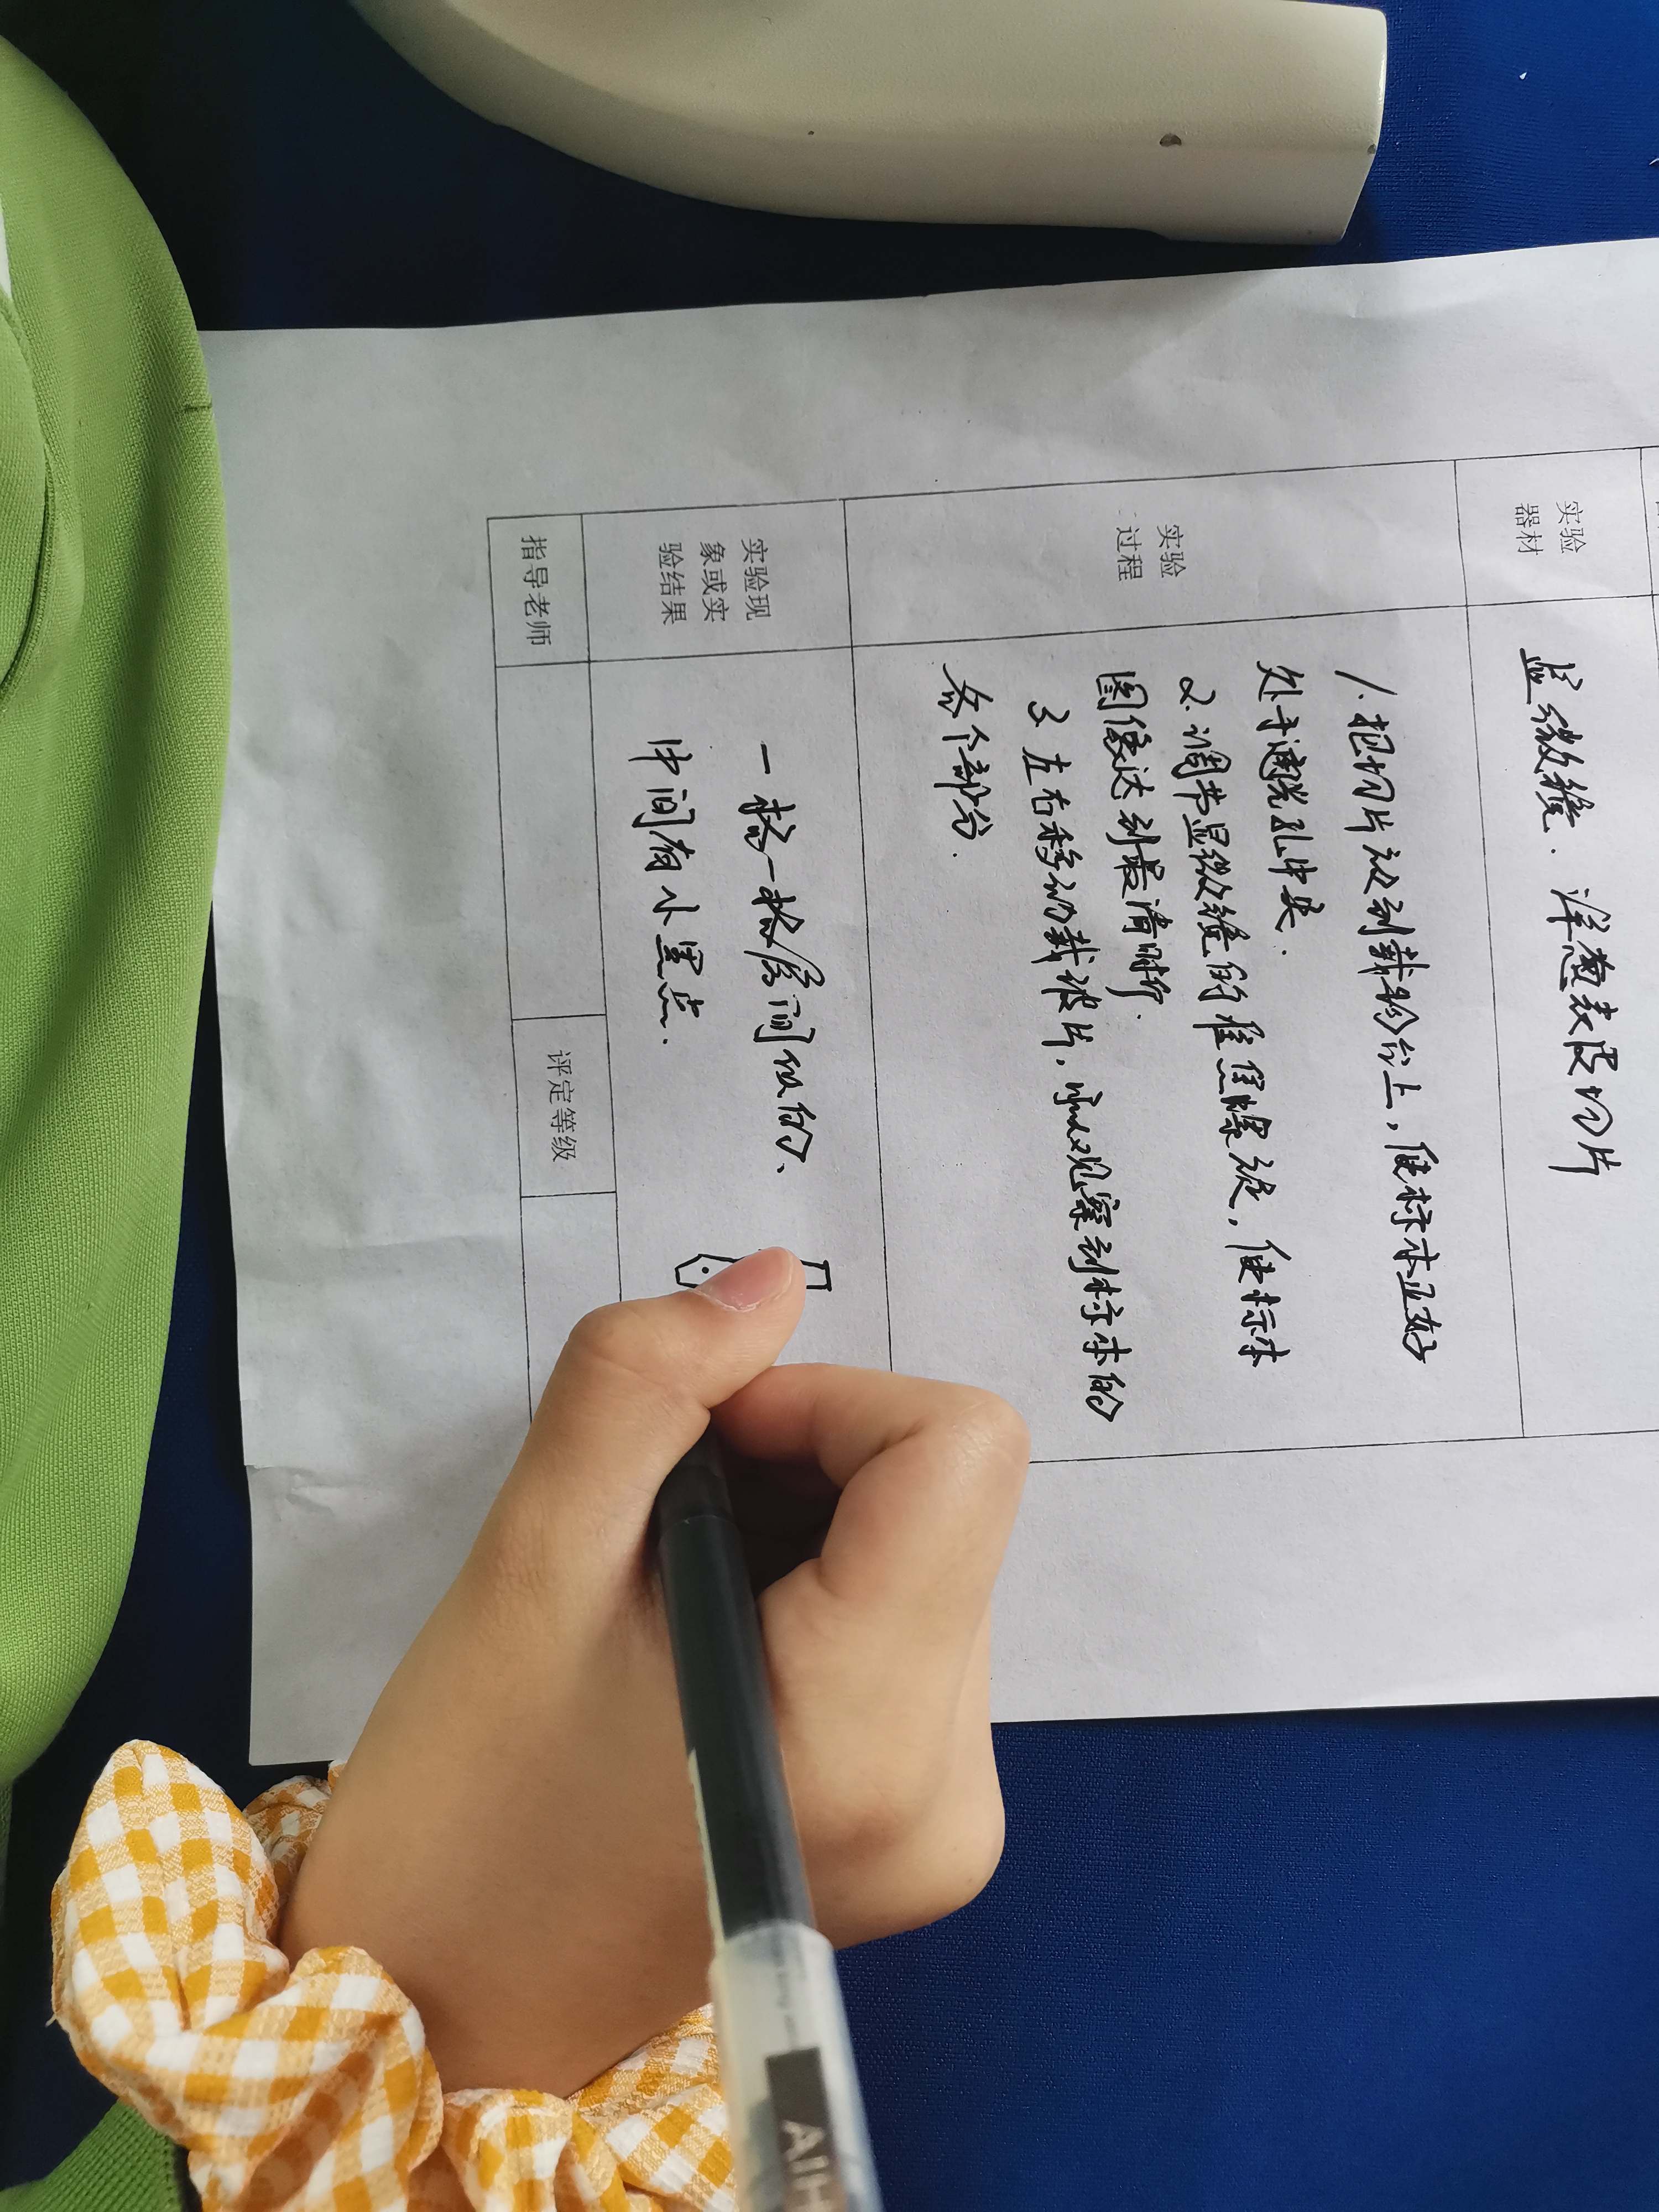 实验
器材
显微镜. 洋葱表皮切片
实验
过程
1. 把切片放到载物台上,使标本正好
处于通光孔中央.
2. 调节显微镜的准焦螺旋,使标本
图像达到最清晰.
3. 左右移动载玻片,以观察到标本的
各个部分.
实验现
象或实
验结果
一格一格房间似的、
中间有小黑点.
指导老师
评定等级
AIH